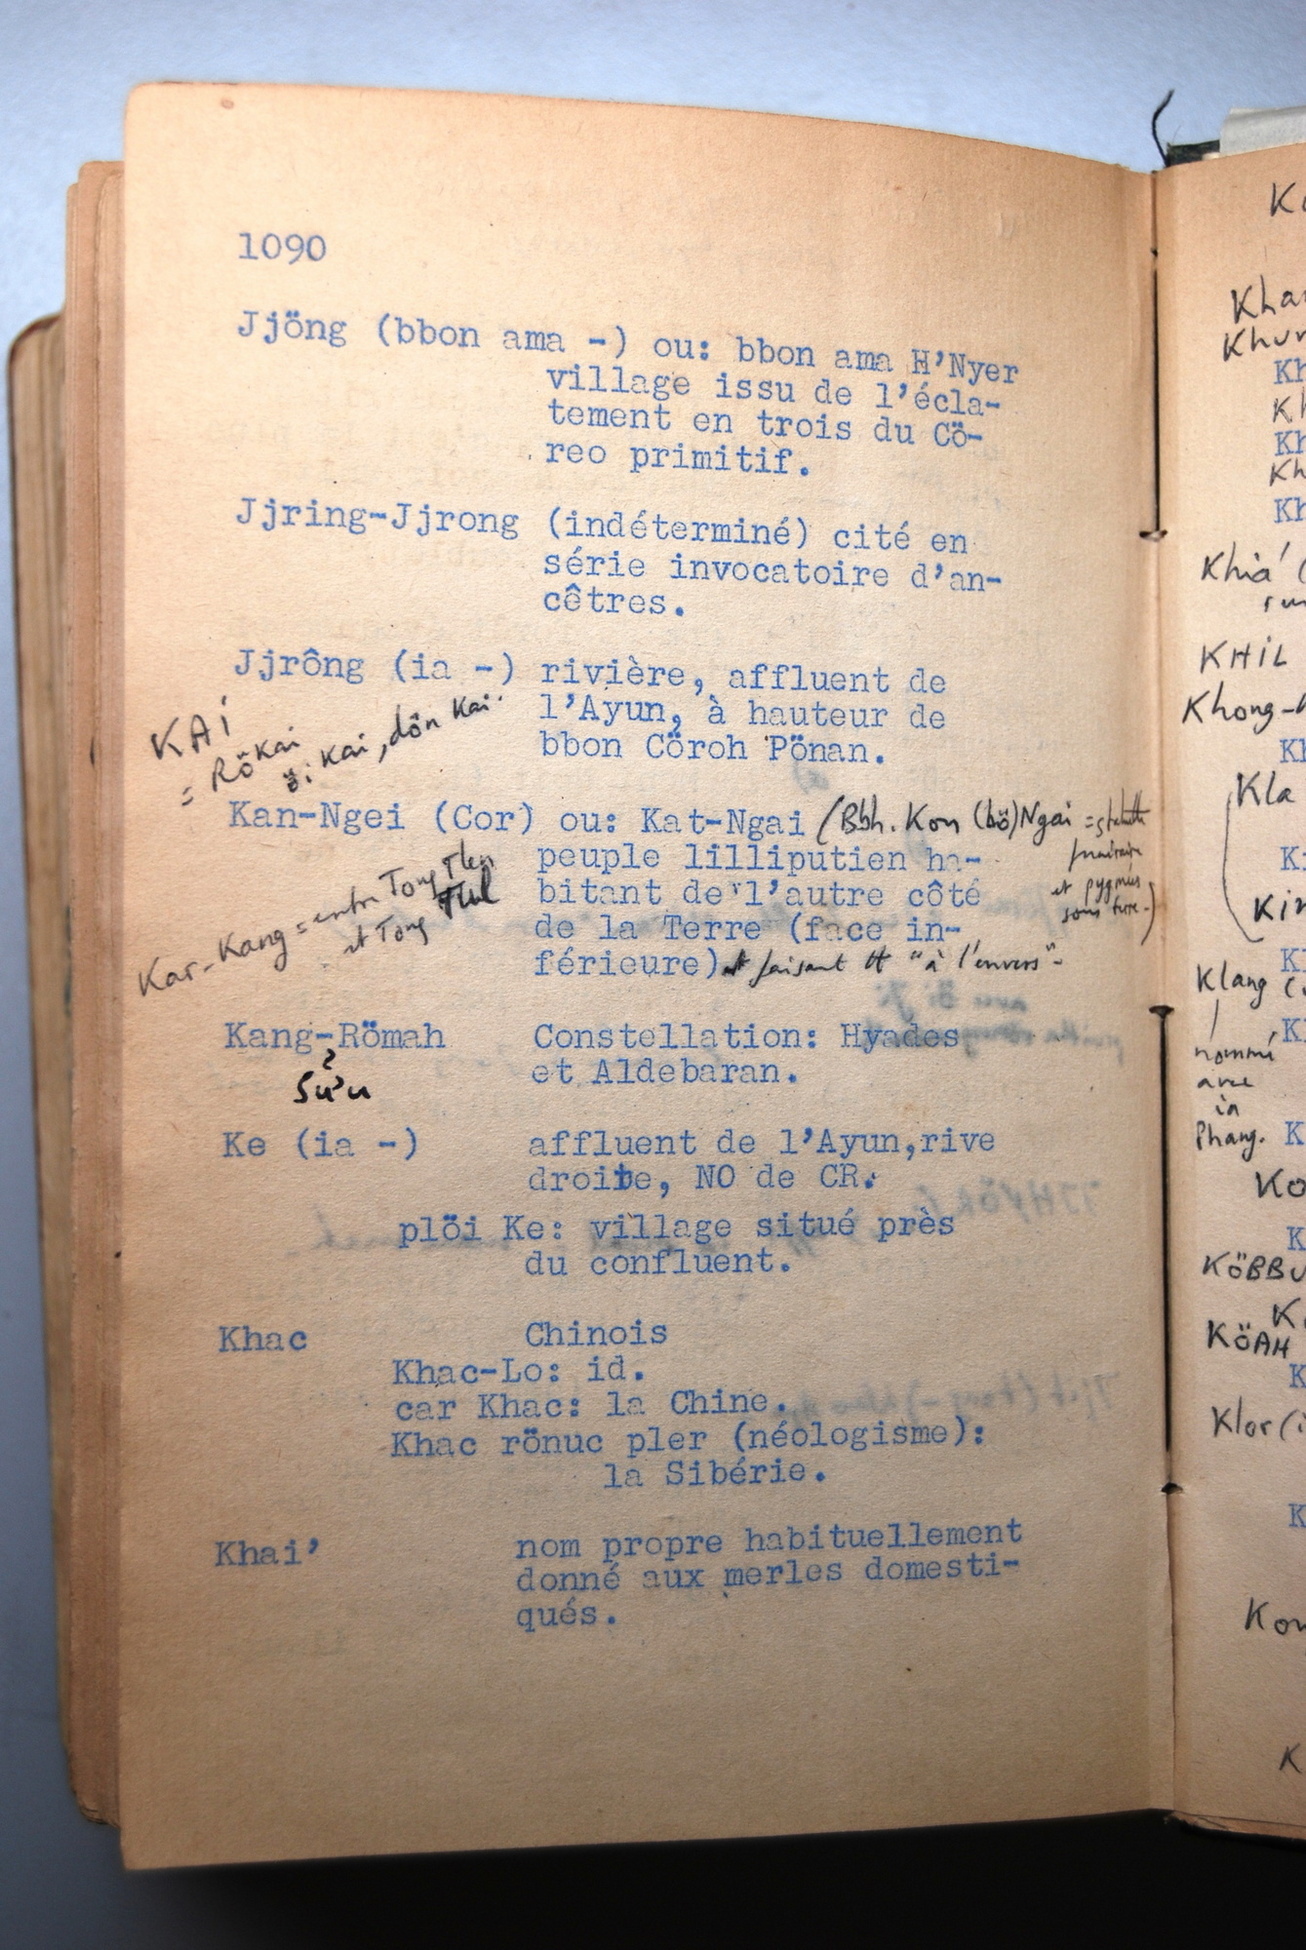 1090
Jjöng (bbon ama -) ou: bbon ama H'Nyer
village issu de l'écla-
tement en trois du Cö-
reo primitif.
Jjring-Jjrong (indéterminé) cité en
série invocatoire d'an-
cêtres.
Jjrông (ia -) rivière, affluent de
l'Ayun, à hauteur de
bbon Cöroh Pönan.
KAI
= Rökai
öi Kai, dôn Kai
Kan-Ngei (Cor) ou: Kat-Ngai (Bbh. Kon (bö)Ngai = statuette
funéraire
et pygmées
sous terre-)
peuple lilliputien ha-
bitant de l'autre côté
de la Terre (face in-
férieure) et faisant tt "à l'envers"-
Kar-Kang = entre Tong Tlen
et Tong
Kang-Römah Constellation: Hyades
et Aldebaran.
Ke (ia -) affluent de l'Ayun,rive
droite, NO de CR.
plöi Ke: village situé près
du confluent.
Khac Chinois
Khac-Lo: id.
car Khac: la Chine.
Khac rönuc pler (néologisme):
la Sibérie.
Khai' nom propre habituellement
donné aux merles domesti-
qués.
Khia' (
KHIL
Khong-
Kla
Klang (
nommé
avec
ia
Phang.
KÖBBU
KÖAH
Klor (i
Kon